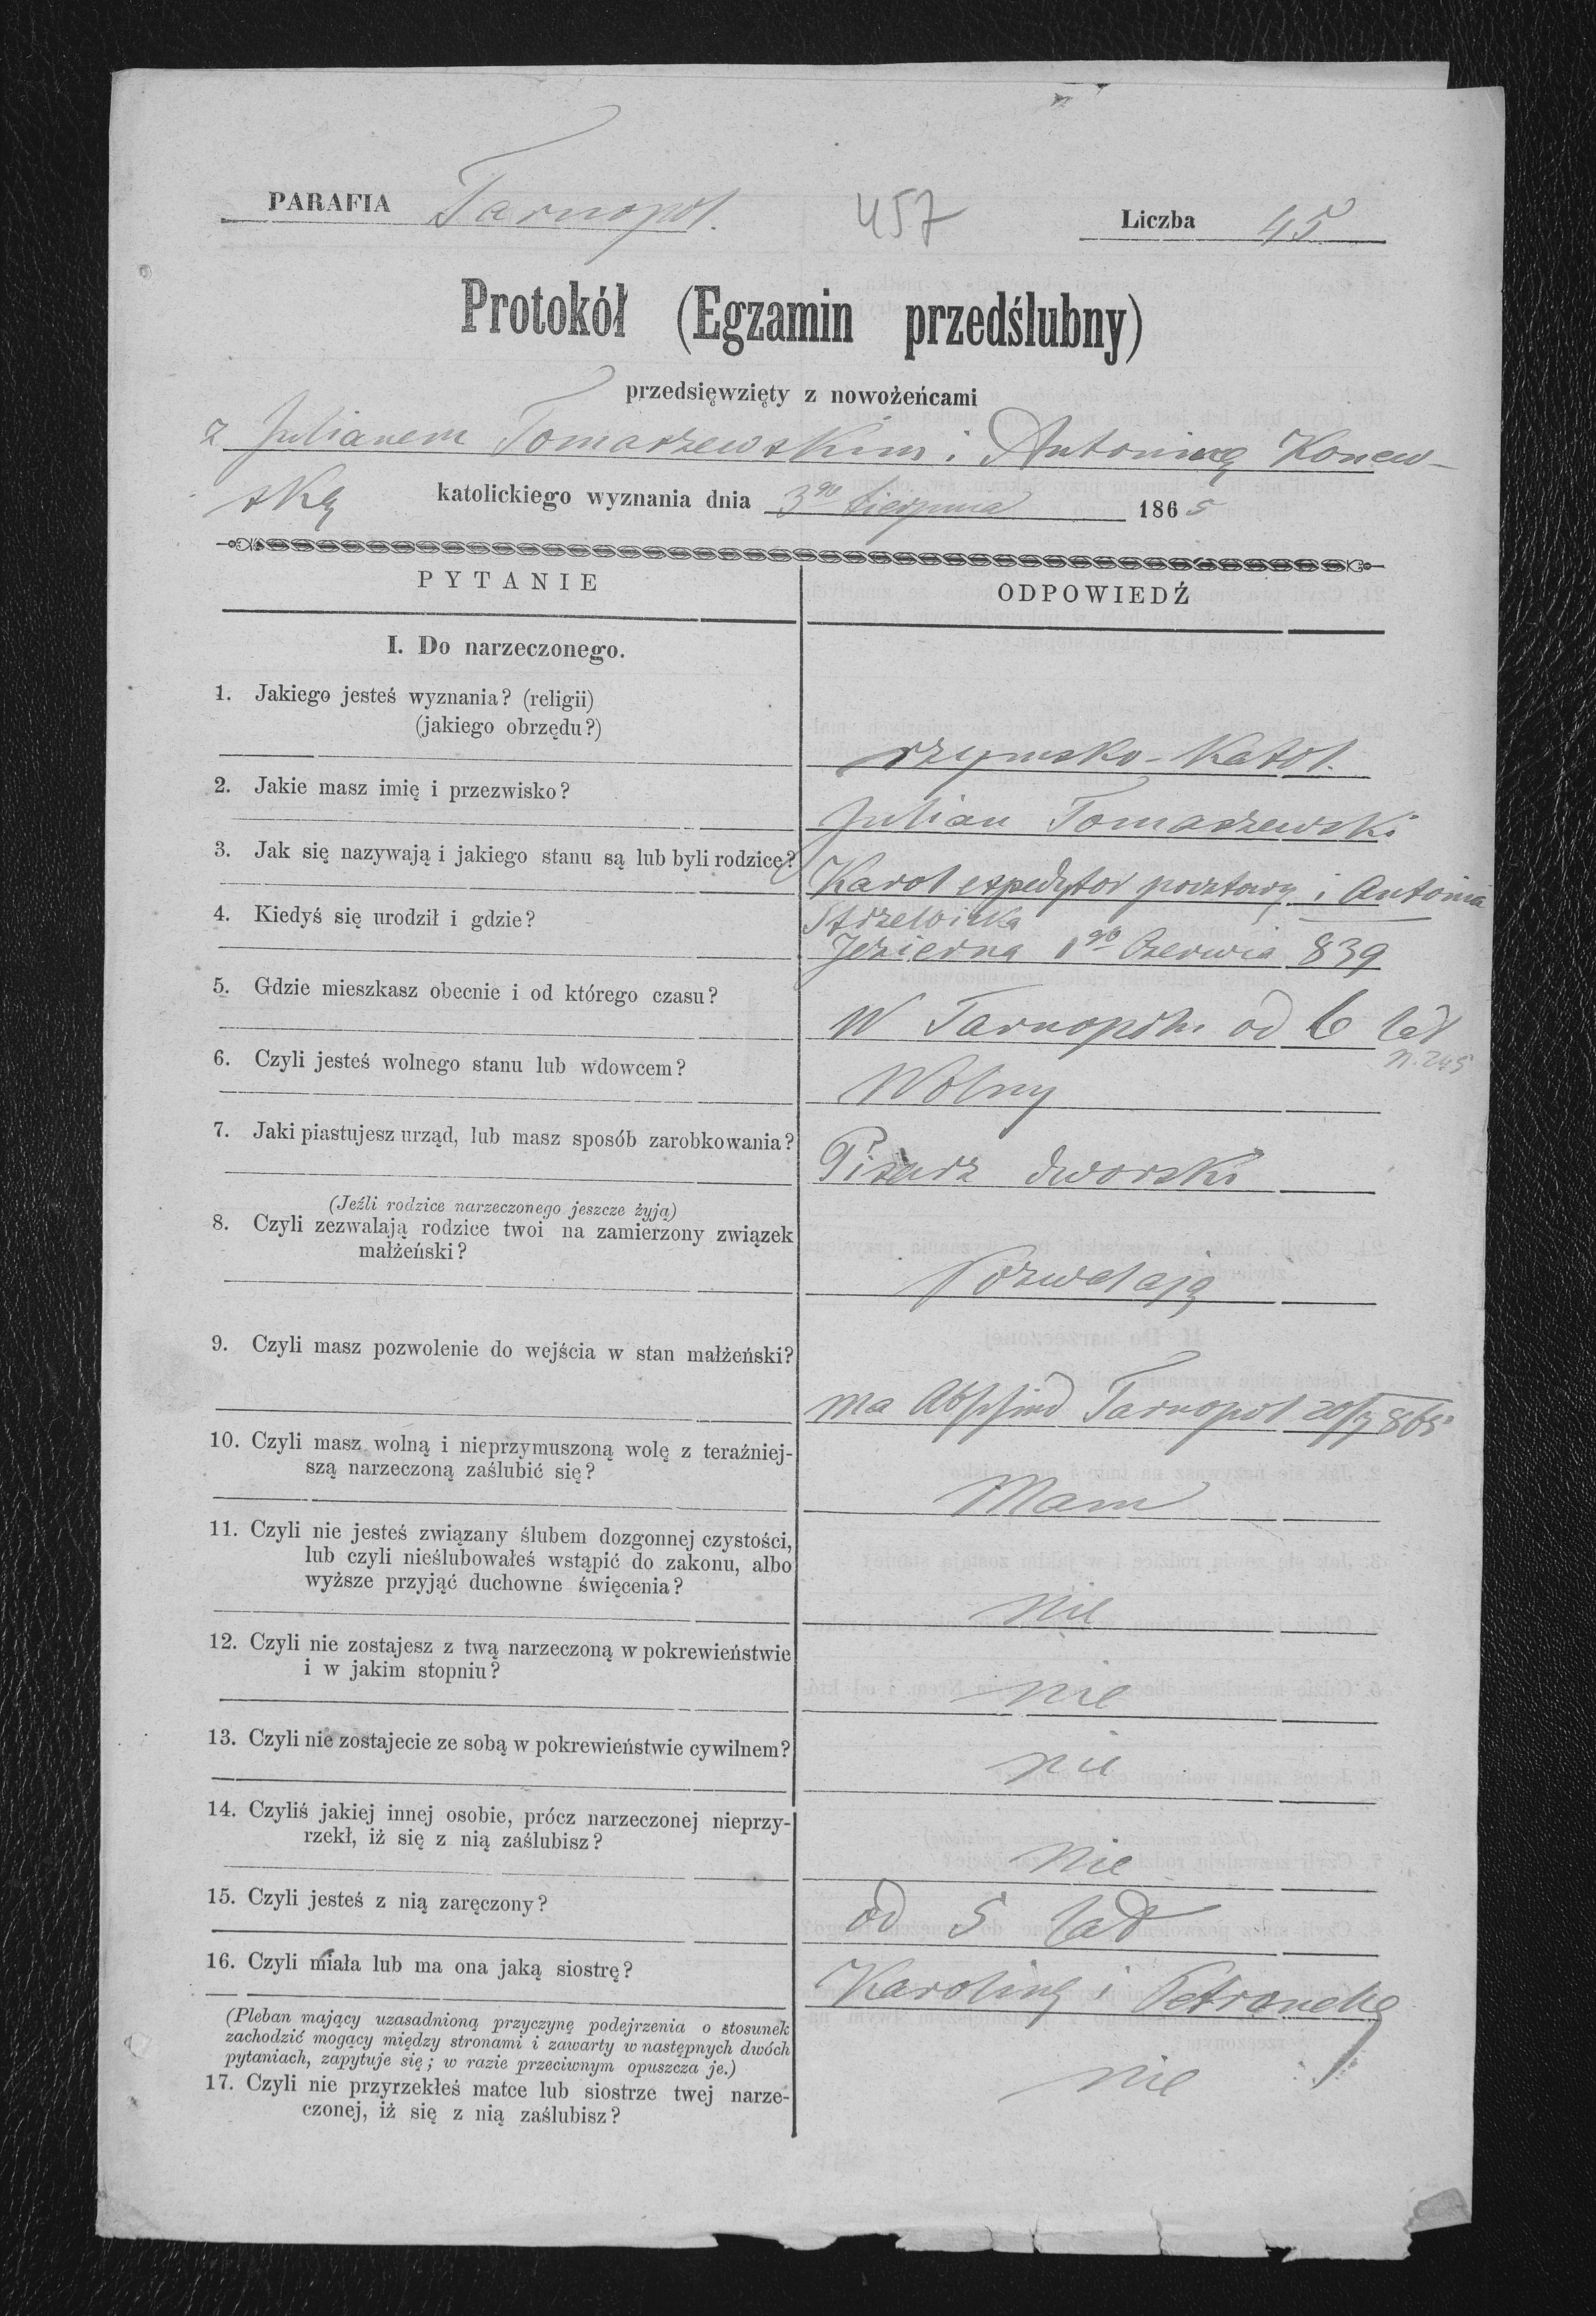 PARAFIA Tarnopol. 457 Liczba 45
Protokół (Egzamin przedślubny)
przedsięwzięty z nowożeńcami
z Julianem Tomaszewskim i Antoniną Konew-
ską katolickiego wyznania dnia 3go Sierpnia 1865
PYTANIE ODPOWIEDŹ
I. Do narzeczonego.
1. Jakiego jesteś wyznania? (religii)
(jakiego obrzędu?)
rzymsko-katol.
2. Jakie masz imię i przezwisko?
Julian Tomaszewski
3. Jak się nazywają i jakiego stanu są lub byli rodzice?
Karol expedytor pocztowy i Antonia
Strzelbicka
4. Kiedyś się urodził i gdzie?
Jezierna 1go Czerwca 839
5. Gdzie mieszkasz obecnie i od którego czasu?
W Tarnopolu od 6 lat
N. 245
6. Czyli jesteś wolnego stanu lub wdowcem?
Wolny
7. Jaki piastujesz urząd, lub masz sposób zarobkowania?
Pisarz dworski
(Jeźli rodzice narzeczonego jeszcze żyją)
8. Czyli zezwalają rodzice twoi na zamierzony związek
małżeński?
Pozwalają
9. Czyli masz pozwolenie do wejścia w stan małżeński?
ma Abschied Tarnopol 20/7 865
10. Czyli masz wolną i nieprzymuszoną wolę z teraźniej-
szą narzeczoną zaślubić się?
Mam
11. Czyli nie jesteś związany ślubem dozgonnej czystości,
lub czyli nieślubowałeś wstąpić do zakonu, albo
wyższe przyjąć duchowne święcenia?
nie
12. Czyli nie zostajesz z twą narzeczoną w pokrewieństwie
i w jakim stopniu?
nie
13. Czyli nie zostajecie ze sobą w pokrewieństwie cywilnem?
nie
14. Czyliś jakiej innej osobie, prócz narzeczonej nieprzy-
rzekł, iż się z nią zaślubisz?
nie
15. Czyli jesteś z nią zaręczony?
od 5 lat
16. Czyli miała lub ma ona jaką siostrę?
Karolinę i Petronelę
(Pleban mający uzasadnioną przyczynę podejrzenia o stosunek
zachodzić mogący między stronami i zawarty w następnych dwóch
pytaniach, zapytuje się; w razie przeciwnym opuszcza je.)
17. Czyli nie przyrzekłeś matce lub siostrze twej narze-
czonej, iż się z nią zaślubisz?
nie